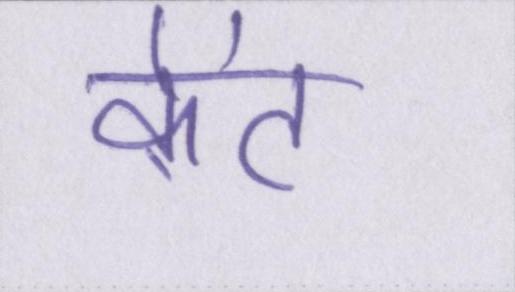 केंट